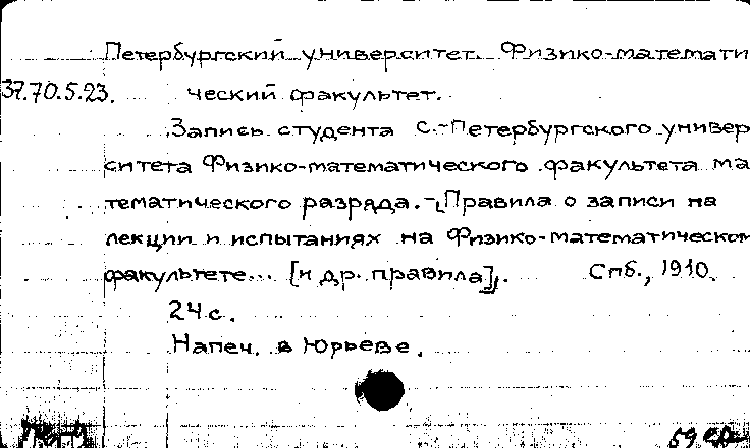 Петербургский университет. Физико-математи
37.70.5.23. ческий факультет.
Запись студента С.-Петербургского универ
ситета Физико-математического факультета ма
тематического разряда. - [Правила о записи на
лекции и испытаниях на Физико-математическом
факультете... [и др. правила]].     Спб., 1910.
24 с.
Напеч. в Юрьеве.